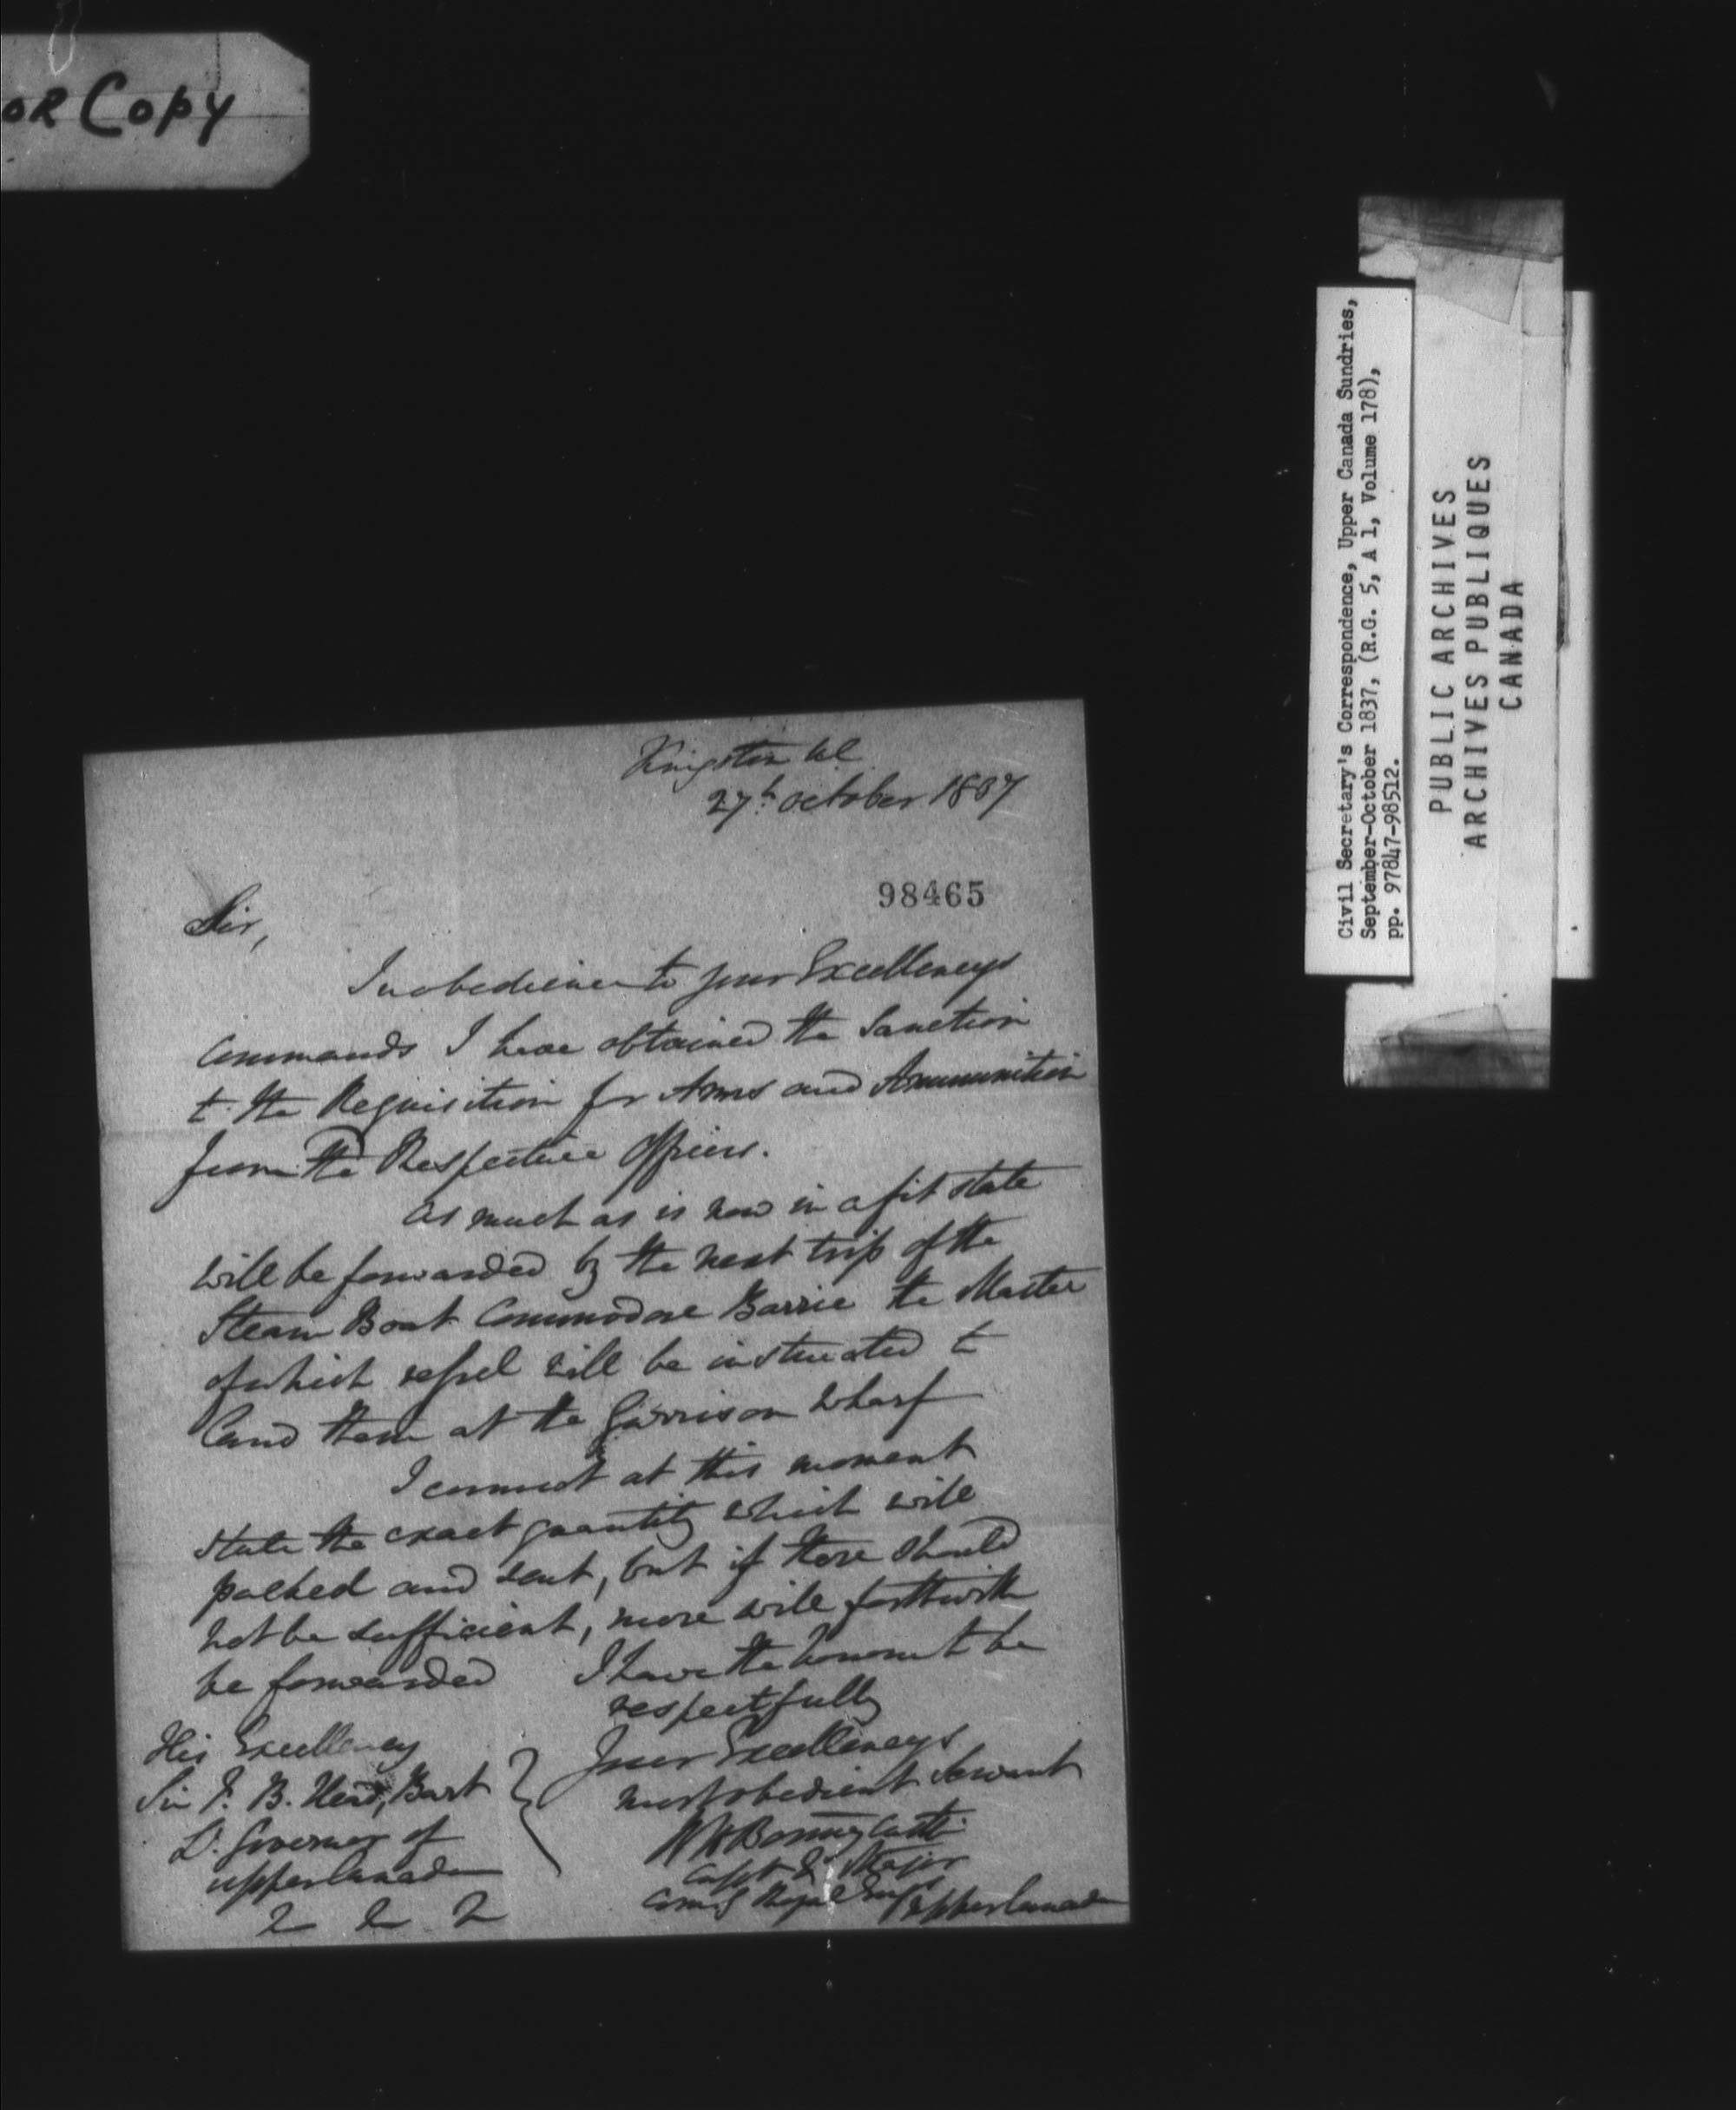 OR COPY
Kingston UC
27th October 1837
98465
Sir,
In obedience to your Excellencys
Commands I have obtained the Sanction
to the Requisition for Arms and Ammunition
from the Respective Officers.
As much as is now in a fit state
will be forwarded by the next trip of the
Steam Boat Commodore Barrie the Master
of which vessel will be instructed to
land them at the Garrison Wharf
I cannot at this moment
state the exact quantity which will
packed and sent, but if there should
not be sufficient, more will forthwith
be forwarded I have the honour to be
respectfully
Your Excellencys
most obedient Servant
RH Bonnycastle
Capt & Major
Comg Royal Engrs Upper Canada
His Excellency
Sir F. B. Head, Bart
Lt. Governor of
Upper Canada
Civil Secretary's Correspondence, Upper Canada Sundries,
September-October 1837, (R.G. 5, A 1, Volume 178),
pp. 97847-98512.
PUBLIC ARCHIVES
ARCHIVES PUBLIQUES
CANADA